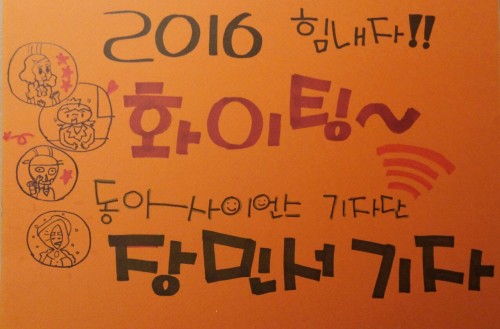 2016 힘내자!!
화이팅~
동아사이언스 기자단
장민서 기자